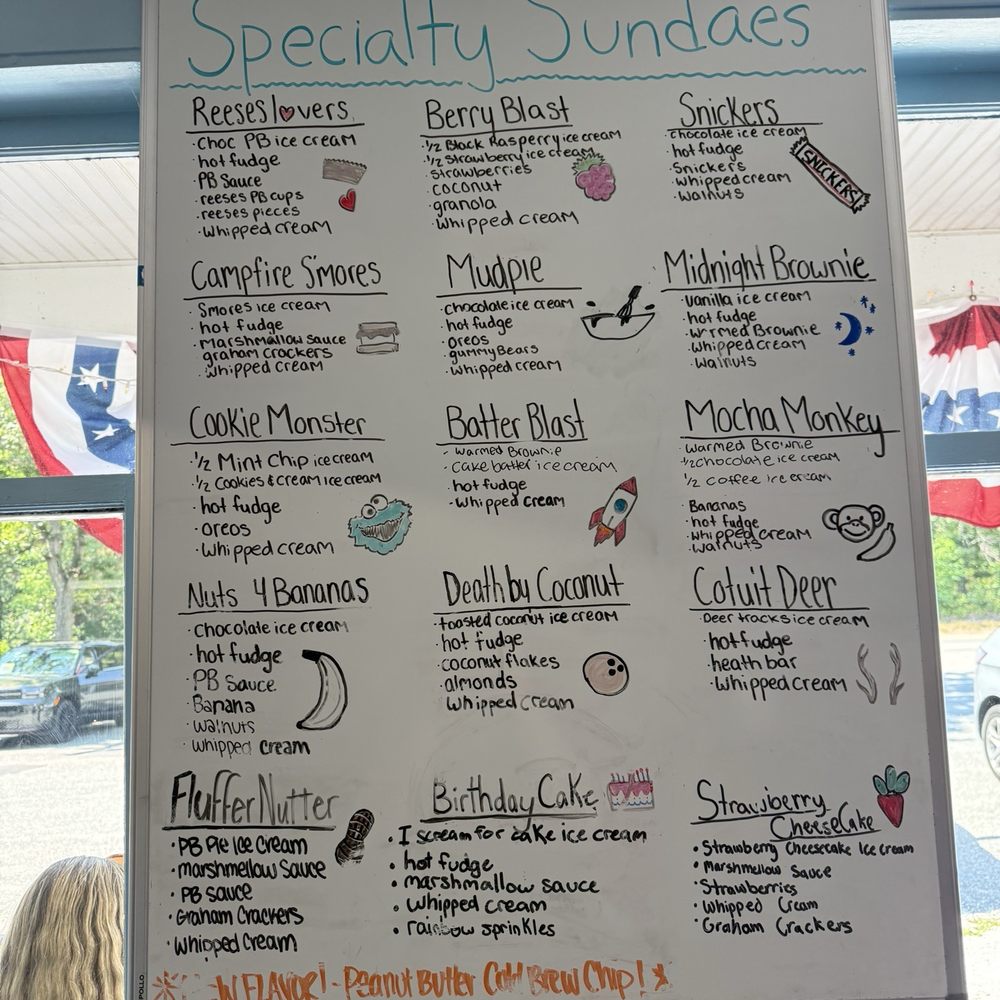 Specialty Sundaes
Reeses lovers
· Choc PB ice cream
· hot fudge
· PB Sauce
· reeses PB cups
· reeses pieces
· Whipped cream
Berry Blast
· 1/2 Black Rasperry ice cream
· 1/2 Strawberry ice cream
· strawberries
· coconut
· granola
Whipped cream
Snickers
· chocolate ice cream
· hot fudge
· Snickers
· whipped cream
· walnuts
SNICKERS
Campfire S'mores
· Smores ice cream
· hot fudge
· marshmallow sauce
graham crackers
· Whipped cream
Mudpie
· chocolate ice cream
· hot fudge
· oreos
· gummyBears
· whipped cream
Midnight Brownie
· Vanilla ice cream
· hot fudge
· Warmed Brownie
· Whipped cream
· walnuts
Cookie Monster
· 1/2 Mint Chip ice cream
· 1/2 Cookies & cream ice cream
· hot fudge
· oreos
· Whipped cream
Batter Blast
· Warmed Brownie
· Cake batter ice cream
· hot fudge
· Whipped cream
Mocha Monkey
· Warmed Brownie
· 1/2 chocolate ice cream
1/2 Coffee ice cream
· Bananas
· hot fudge
· whipped cream
· walnuts
Nuts 4 Bananas
· Chocolate ice cream
· hot fudge
· PB Sauce
· Banana
· walnuts
· whipped cream
Death by Coconut
· toasted coconut ice cream
· hot fudge
· coconut flakes
· almonds
whipped cream
Cotuit Deer
· Deer tracks ice cream
· hot fudge
· heath bar
· Whipped cream
Fluffer Nutter
• PB Pie Ice Cream
• marshmellow Sauce
• PB sauce
• Graham Crackers
• Whipped Cream
Birthday Cake
• I scream for cake ice cream
• hot fudge
• marshmallow sauce
• whipped cream
• rainbow sprinkles
Strawberry
CheeseCake
• Strawberry Cheesecake Ice Cream
• Marshmellow Sauce
• Strawberries
• Whipped Cream
• Graham Crackers
FLAVOR! - Peanut Butter Cold Brew Chip!